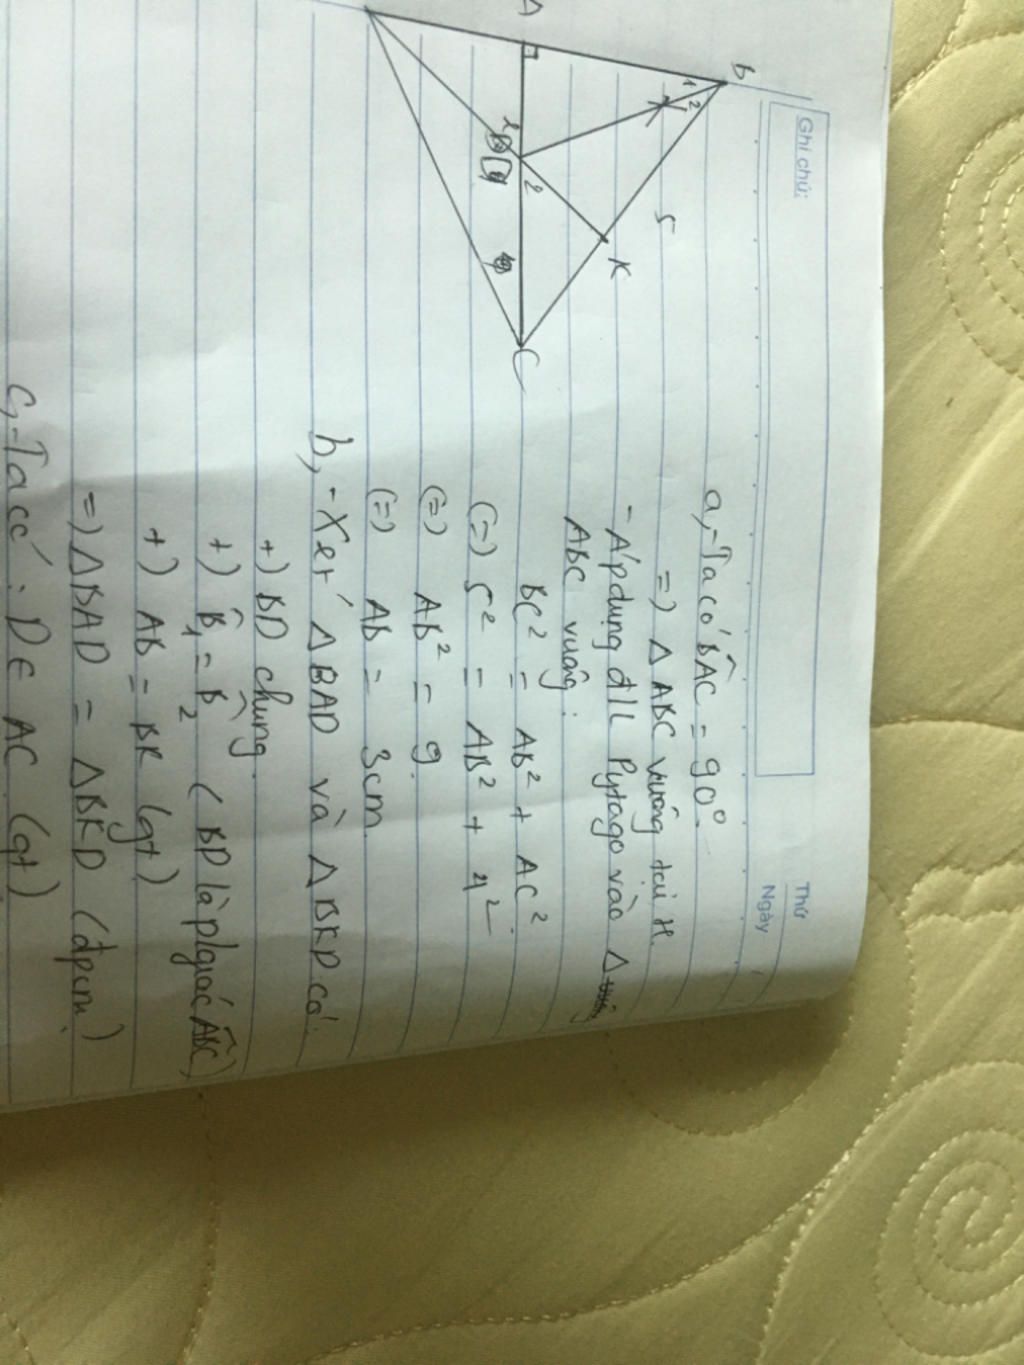 Ghi chú:
Thứ
Ngày
A
B
1
2
5
K
1
D
2
4
C
a, - Ta có BÂC = 90°
=) Δ ABC vuông tại H.
- Áp dụng đlL Pytago vào Δ
ABC vuông:
BC² = AB² + AC².
(=) 5² = AB² + 4²
(=) AB² = 9.
(=) AB = 3cm
b, - Xét Δ BAD và Δ BKD có:
+) BD chung.
+) B̂₁ = B̂₂ ( BD là plgiác ABC)
+) AB = BK (gt)
=) Δ BAD = Δ BKD (đpcm)
c, - Ta có: D ∈ AC (gt)